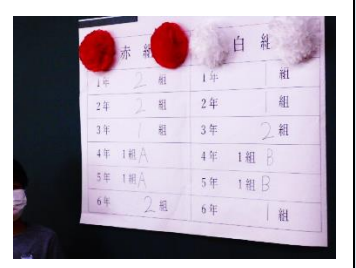 赤組
白組
1年 2組
1年 1組
2年 2組
2年 1組
3年 1組
3年 2組
4年 1組A
4年 1組B
5年 1組A
5年 1組B
6年 2組
6年 1組